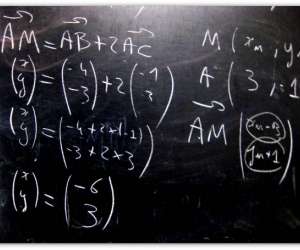 AM = AB + 2 AC
(x y) = (-4 -3) + 2 (-1 3)
(x y) = (-4+2×(-1) -3+2×3)
(x y) = (-6 3)
M (xM ; y
A (3 ; -1
AM (xM-3 yM+1)